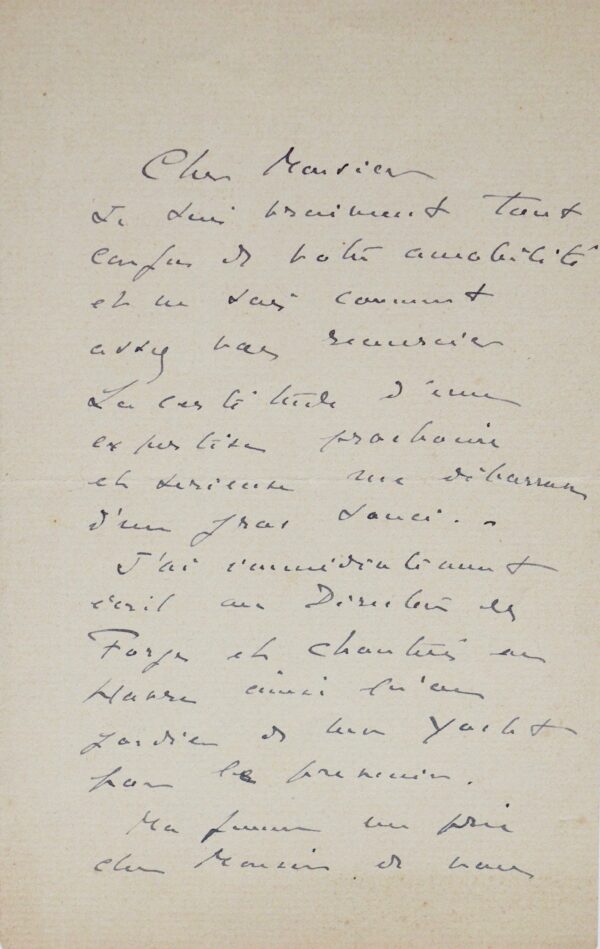 Cher Monsieur
Je suis vraiment tout
confus de votre amabilité
et ne sais comment
assez vous remercier
La certitude d'une
expertise prochaine
et serieuse me débarrasse
d'un gros souci. -
J'ai immédiatement
écrit au Directeur des
Forges et Chantiers au
Havre ainsi qu'au
gardien de mon Yacht
pour le prévenir.
Ma femme me prie
cher Monsieur de vous